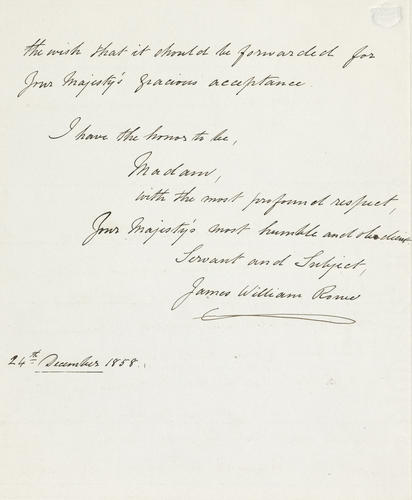 the wish that it should be forwarded for
Your Majesty's gracious acceptance.
I have the honor to be,
Madam,
with the most profound respect,
Your Majesty's most humble and obedient
Servant and Subject,
James William Rowe
24th December 1858.